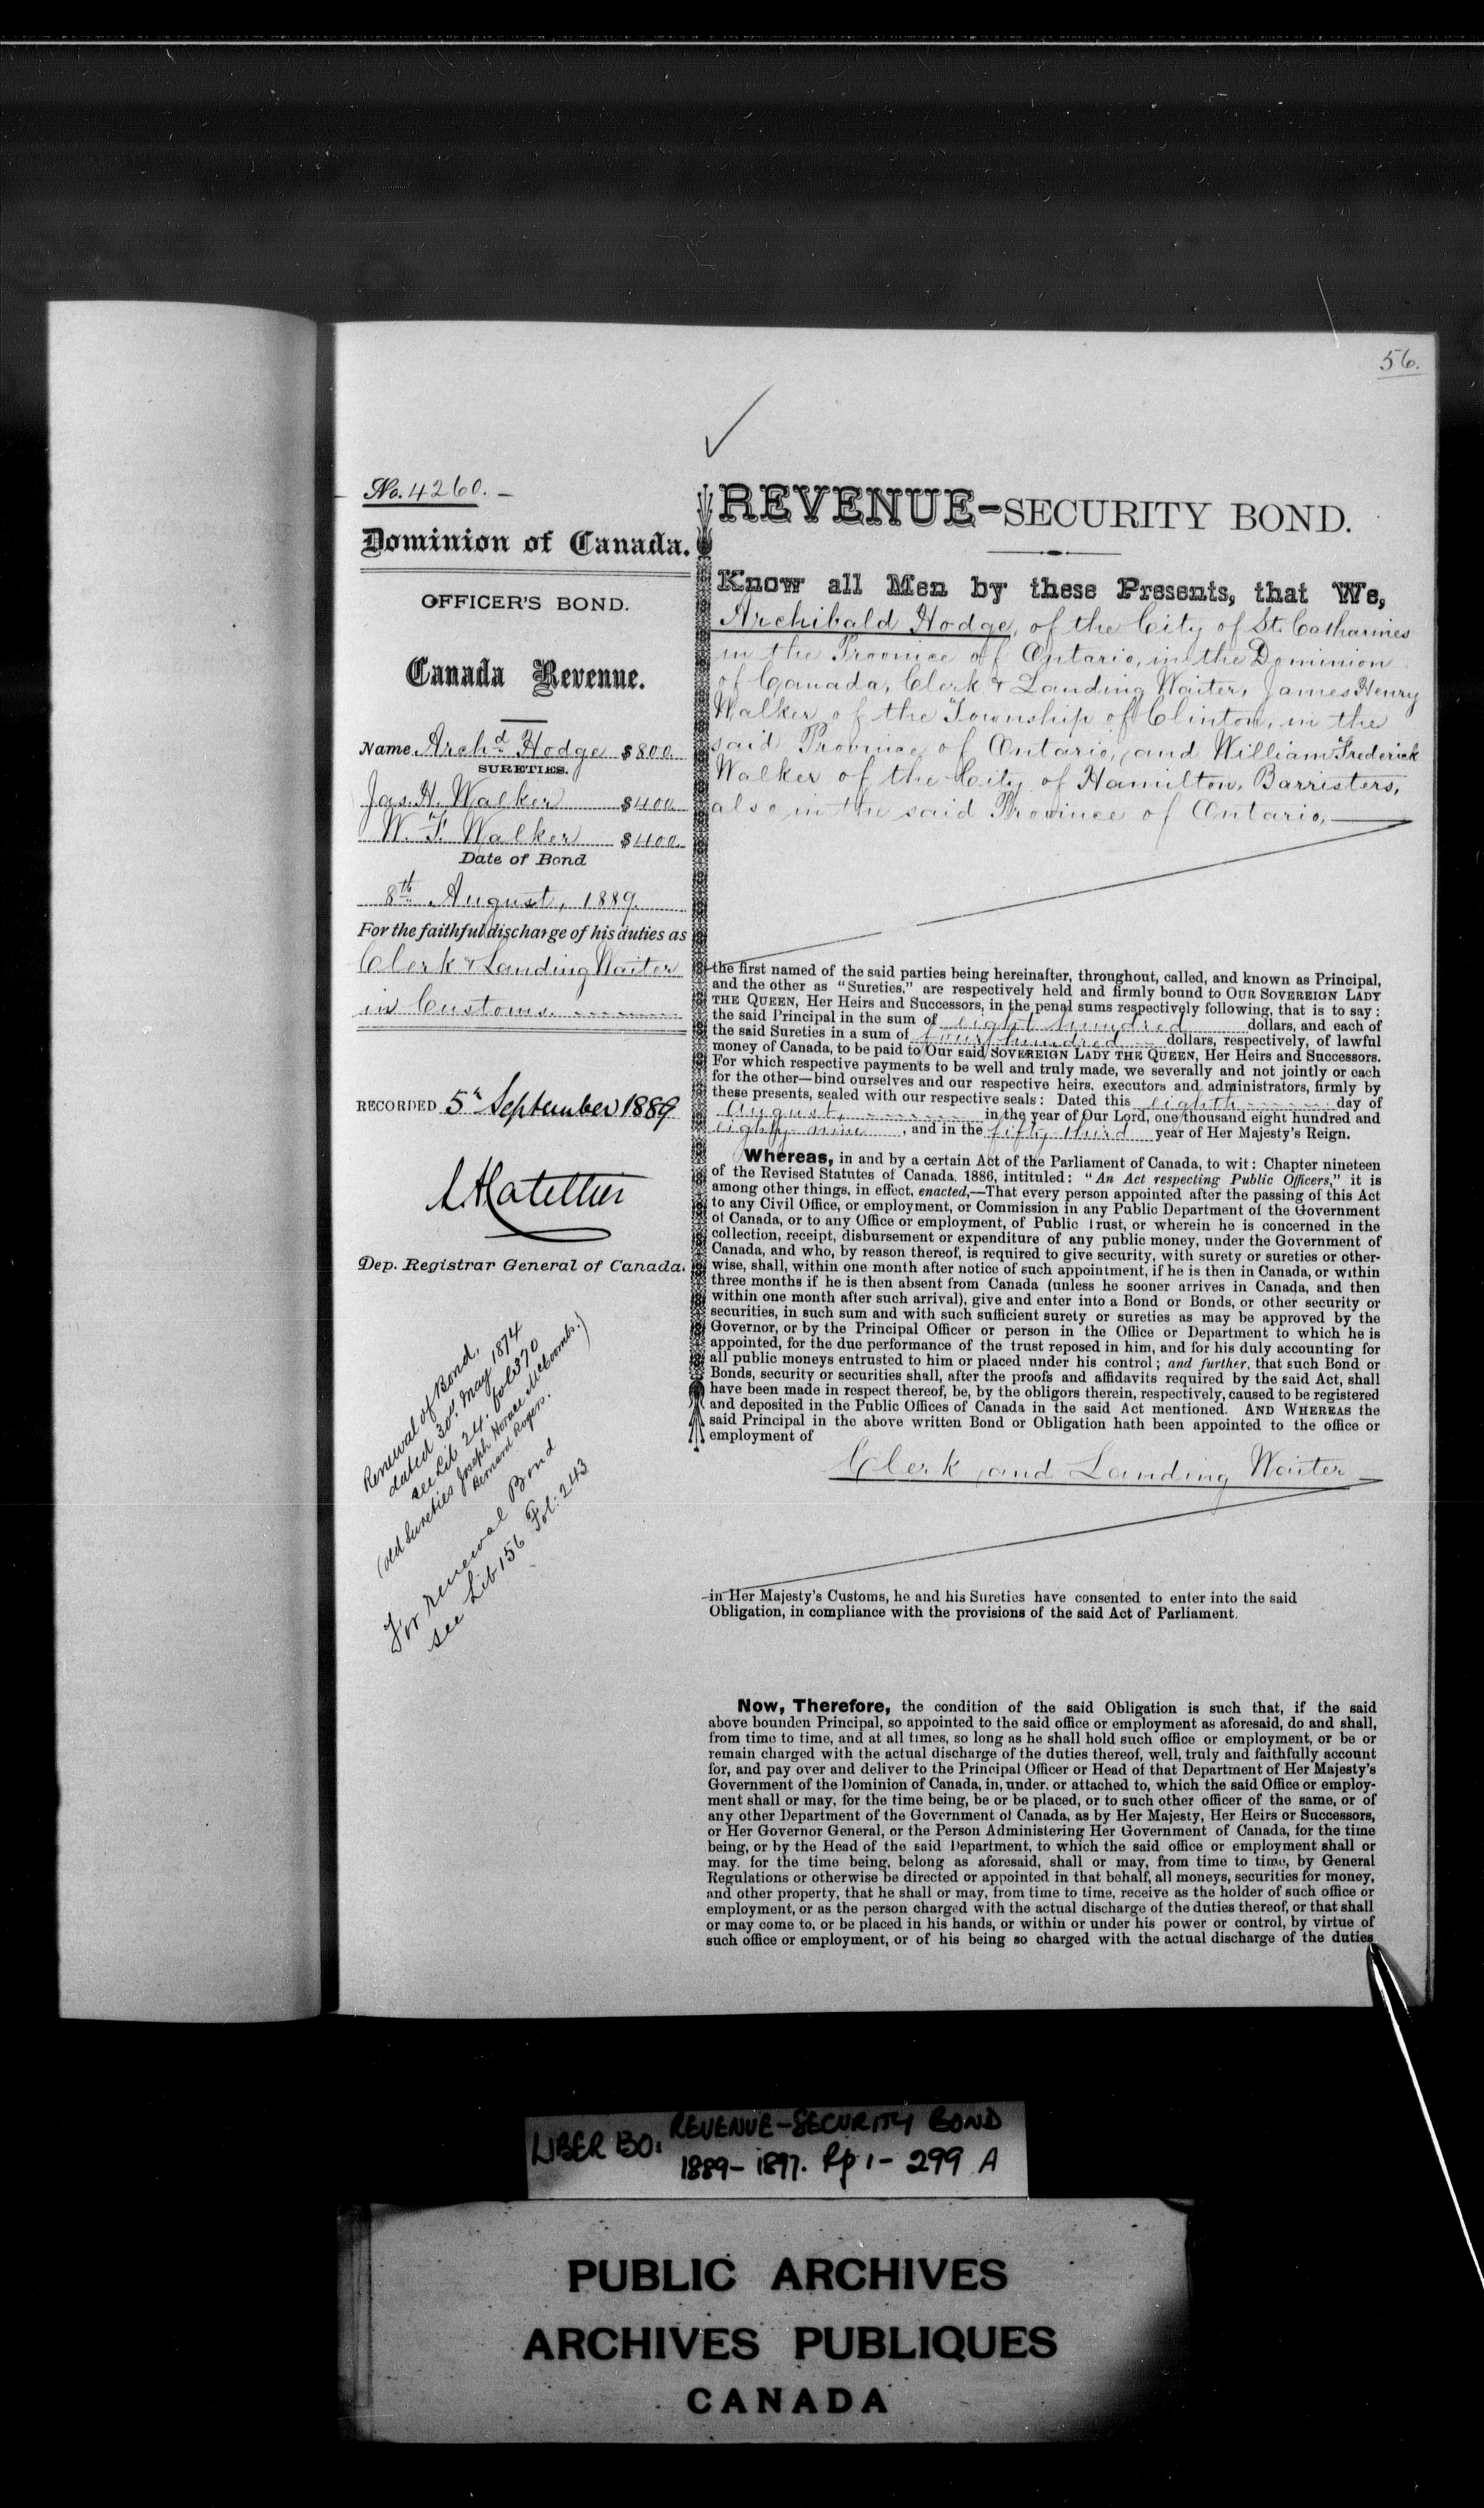 56.
No. 4260. —
Dominion of Canada.
OFFICER'S BOND.
Canada Revenue.
Name Archd Hodge $800.
SURETIES.
Jas. H. Walker $400.
W. F. Walker $400.
Date of Bond
8th August, 1889.
For the faithful discharge of his duties as
Clerk & Landing Waiter
in Customs.
RECORDED 5th September 1889
Dep. Registrar General of Canada.
Renewal of Bond,
dated 30th May 1874
see Lib 24. fol 370
(old Sureties Joseph Horace
Rogers.
For renewal Bond
see Lib 156 Fol: 243
REVENUE-SECURITY BOND.
Know all Men by these Presents, that We,
Archibald Hodge, of the City of St. Catharines
in the Province of Ontario, in the Dominion
of Canada, Clerk & Landing Waiter, James Henry
Walker of the Township of Clinton, in the
said Province of Ontario, and William Frederick
Walker of the City of Hamilton, Barristers,
also in the said Province of Ontario,
the first named of the said parties being hereinafter, throughout, called, and known as Principal,
and the other as "Sureties," are respectively held and firmly bound to OUR SOVEREIGN LADY
THE QUEEN, Her Heirs and Successors, in the penal sums respectively following, that is to say:
the said Principal in the sum of eight hundred dollars, and each of
the said Sureties in a sum of four hundred dollars, respectively, of lawful
money of Canada, to be paid to Our said SOVEREIGN LADY THE QUEEN, Her Heirs and Successors.
For which respective payments to be well and truly made, we severally and not jointly or each
for the other—bind ourselves and our respective heirs, executors and administrators, firmly by
these presents, sealed with our respective seals: Dated this eighth day of
August, in the year of Our Lord, one thousand eight hundred and
eighty nine, and in the fifty third year of Her Majesty's Reign.
Whereas, in and by a certain Act of the Parliament of Canada, to wit: Chapter nineteen
of the Revised Statutes of Canada, 1886, intituled: "An Act respecting Public Officers," it is
among other things, in effect, enacted,—That every person appointed after the passing of this Act
to any Civil Office, or employment, or Commission in any Public Department of the Government
of Canada, or to any Office or employment, of Public Trust, or wherein he is concerned in the
collection, receipt, disbursement or expenditure of any public money, under the Government of
Canada, and who, by reason thereof, is required to give security, with surety or sureties or other-
wise, shall, within one month after notice of such appointment, if he is then in Canada, or within
three months if he is then absent from Canada (unless he sooner arrives in Canada, and then
within one month after such arrival), give and enter into a Bond or Bonds, or other security or
securities, in such sum and with such sufficient surety or sureties as may be approved by the
Governor, or by the Principal Officer or person in the Office or Department to which he is
appointed, for the due performance of the trust reposed in him, and for his duly accounting for
all public moneys entrusted to him or placed under his control; and further, that such Bond or
Bonds, security or securities shall, after the proofs and affidavits required by the said Act, shall
have been made in respect thereof, be, by the obligors therein, respectively, caused to be registered
and deposited in the Public Offices of Canada in the said Act mentioned. AND WHEREAS the
said Principal in the above written Bond or Obligation hath been appointed to the office or
employment of
Clerk and Landing Waiter
in Her Majesty's Customs, he and his Sureties have consented to enter into the said
Obligation, in compliance with the provisions of the said Act of Parliament.
Now, Therefore, the condition of the said Obligation is such that, if the said
above bounden Principal, so appointed to the said office or employment as aforesaid, do and shall,
from time to time, and at all times, so long as he shall hold such office or employment, or be or
remain charged with the actual discharge of the duties thereof, well, truly and faithfully account
for, and pay over and deliver to the Principal Officer or Head of that Department of Her Majesty's
Government of the Dominion of Canada, in, under, or attached to, which the said Office or employ-
ment shall or may, for the time being, be or be placed, or to such other officer of the same, or of
any other Department of the Government of Canada, as by Her Majesty, Her Heirs or Successors,
or Her Governor General, or the Person Administering Her Government of Canada, for the time
being, or by the Head of the said Department, to which the said office or employment shall or
may, for the time being, belong as aforesaid, shall or may, from time to time, by General
Regulations or otherwise be directed or appointed in that behalf, all moneys, securities for money,
and other property, that he shall or may, from time to time, receive as the holder of such office or
employment, or as the person charged with the actual discharge of the duties thereof, or that shall
or may come to, or be placed in his hands, or within or under his power or control, by virtue of
such office or employment, or of his being so charged with the actual discharge of the duties
LIBER BO: REVENUE-SECURITY BOND
1889-1897. Pp 1-299 A
PUBLIC ARCHIVES
ARCHIVES PUBLIQUES
CANADA